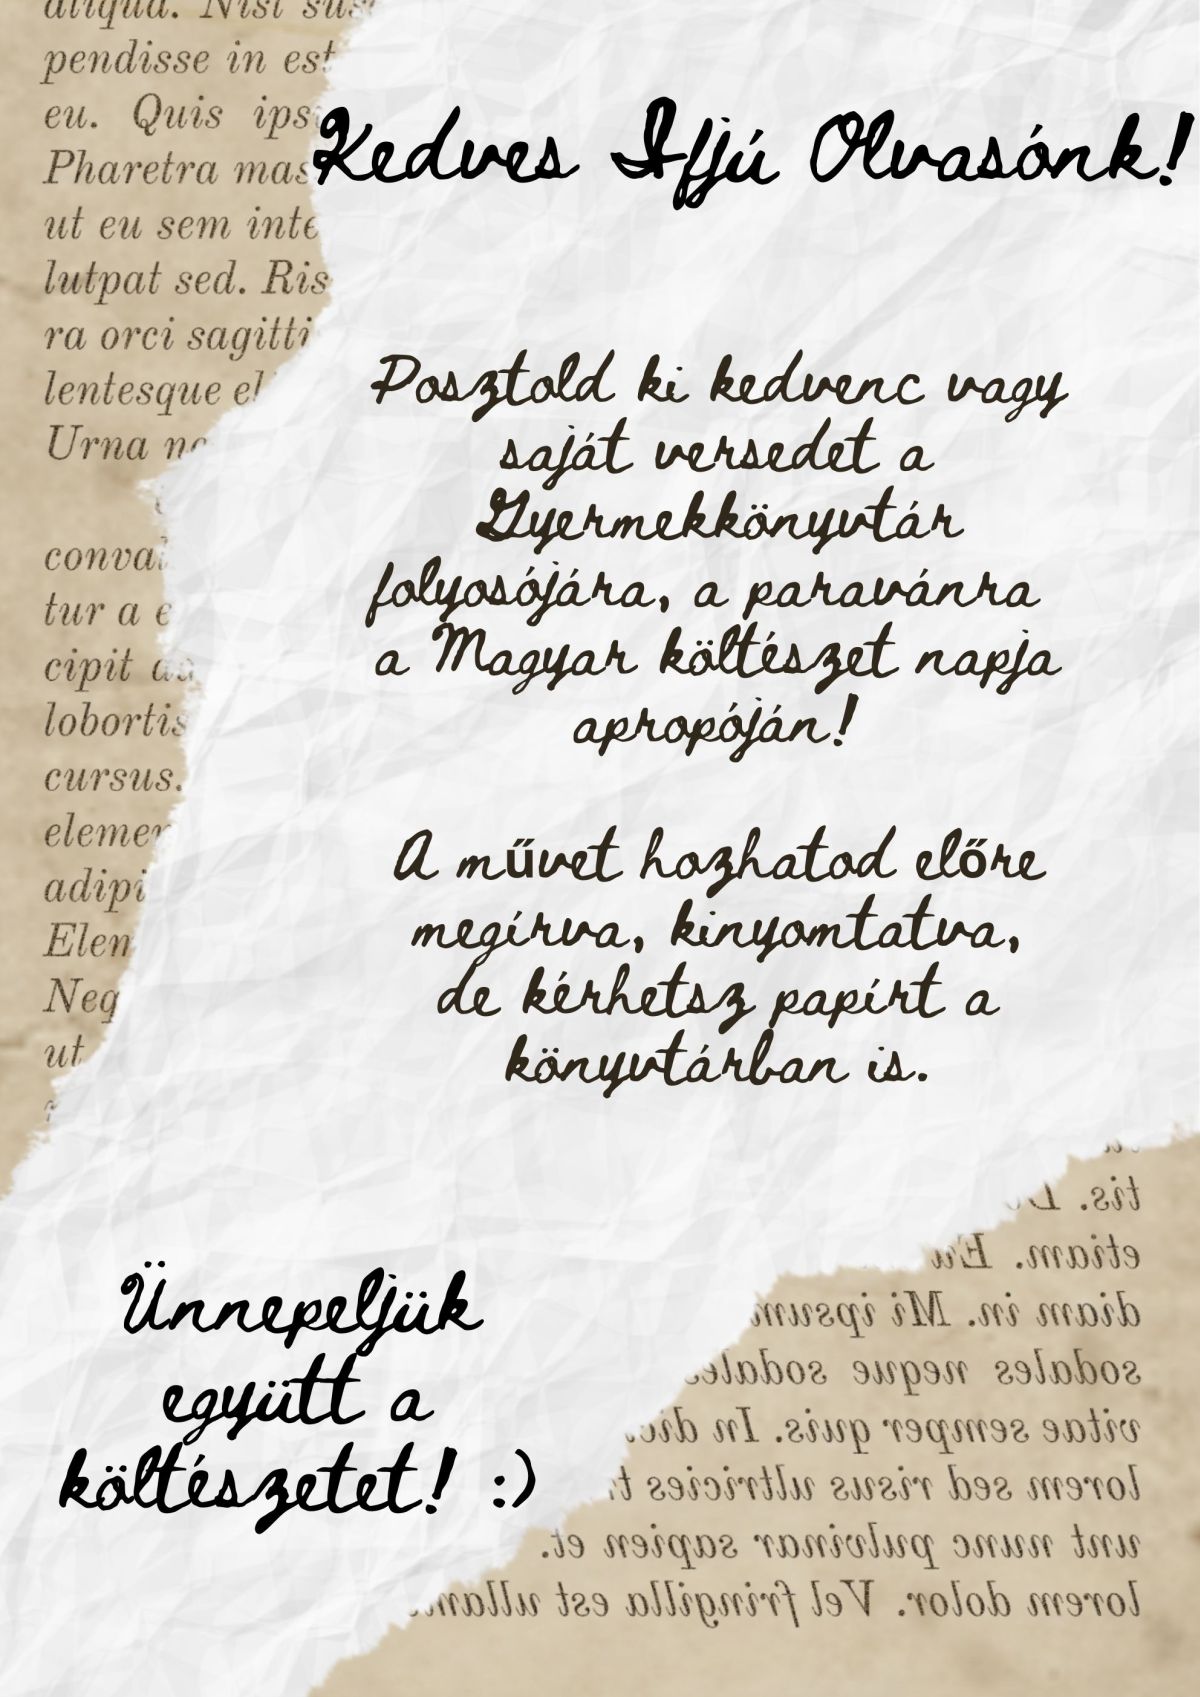 aliqua. Nisl sus
pendisse in est
eu. Quis ips
Pharetra mas
ut eu sem inte
lutpat sed. Ris
ra orci sagitti
lentesque el
Urna
conval
tur a e
cipit
lobortis
cursus.
elemen
adipi
Elen
Neq
ut
Kedves Ifjú Olvasónk!
Posztold ki kedvenc vagy
saját versedet a
Gyermekkönyvtár
folyosójára, a paravánra
a Magyar költészet napja
apropóján!
A művet hozhatod előre
megírva, kinyomtatva,
de kérhetsz papírt a
könyvtárban is.
Ünnepeljük
együtt a
költészetet! :)
tis.
etiam. Eu
diam in. Mi ipsum
sodales neque sodales
vitae semper quis. In dic
lorem sed risus ultricies t
unt nunc pulvinar sapien et.
lorem dolor. Vel fringilla est ullam